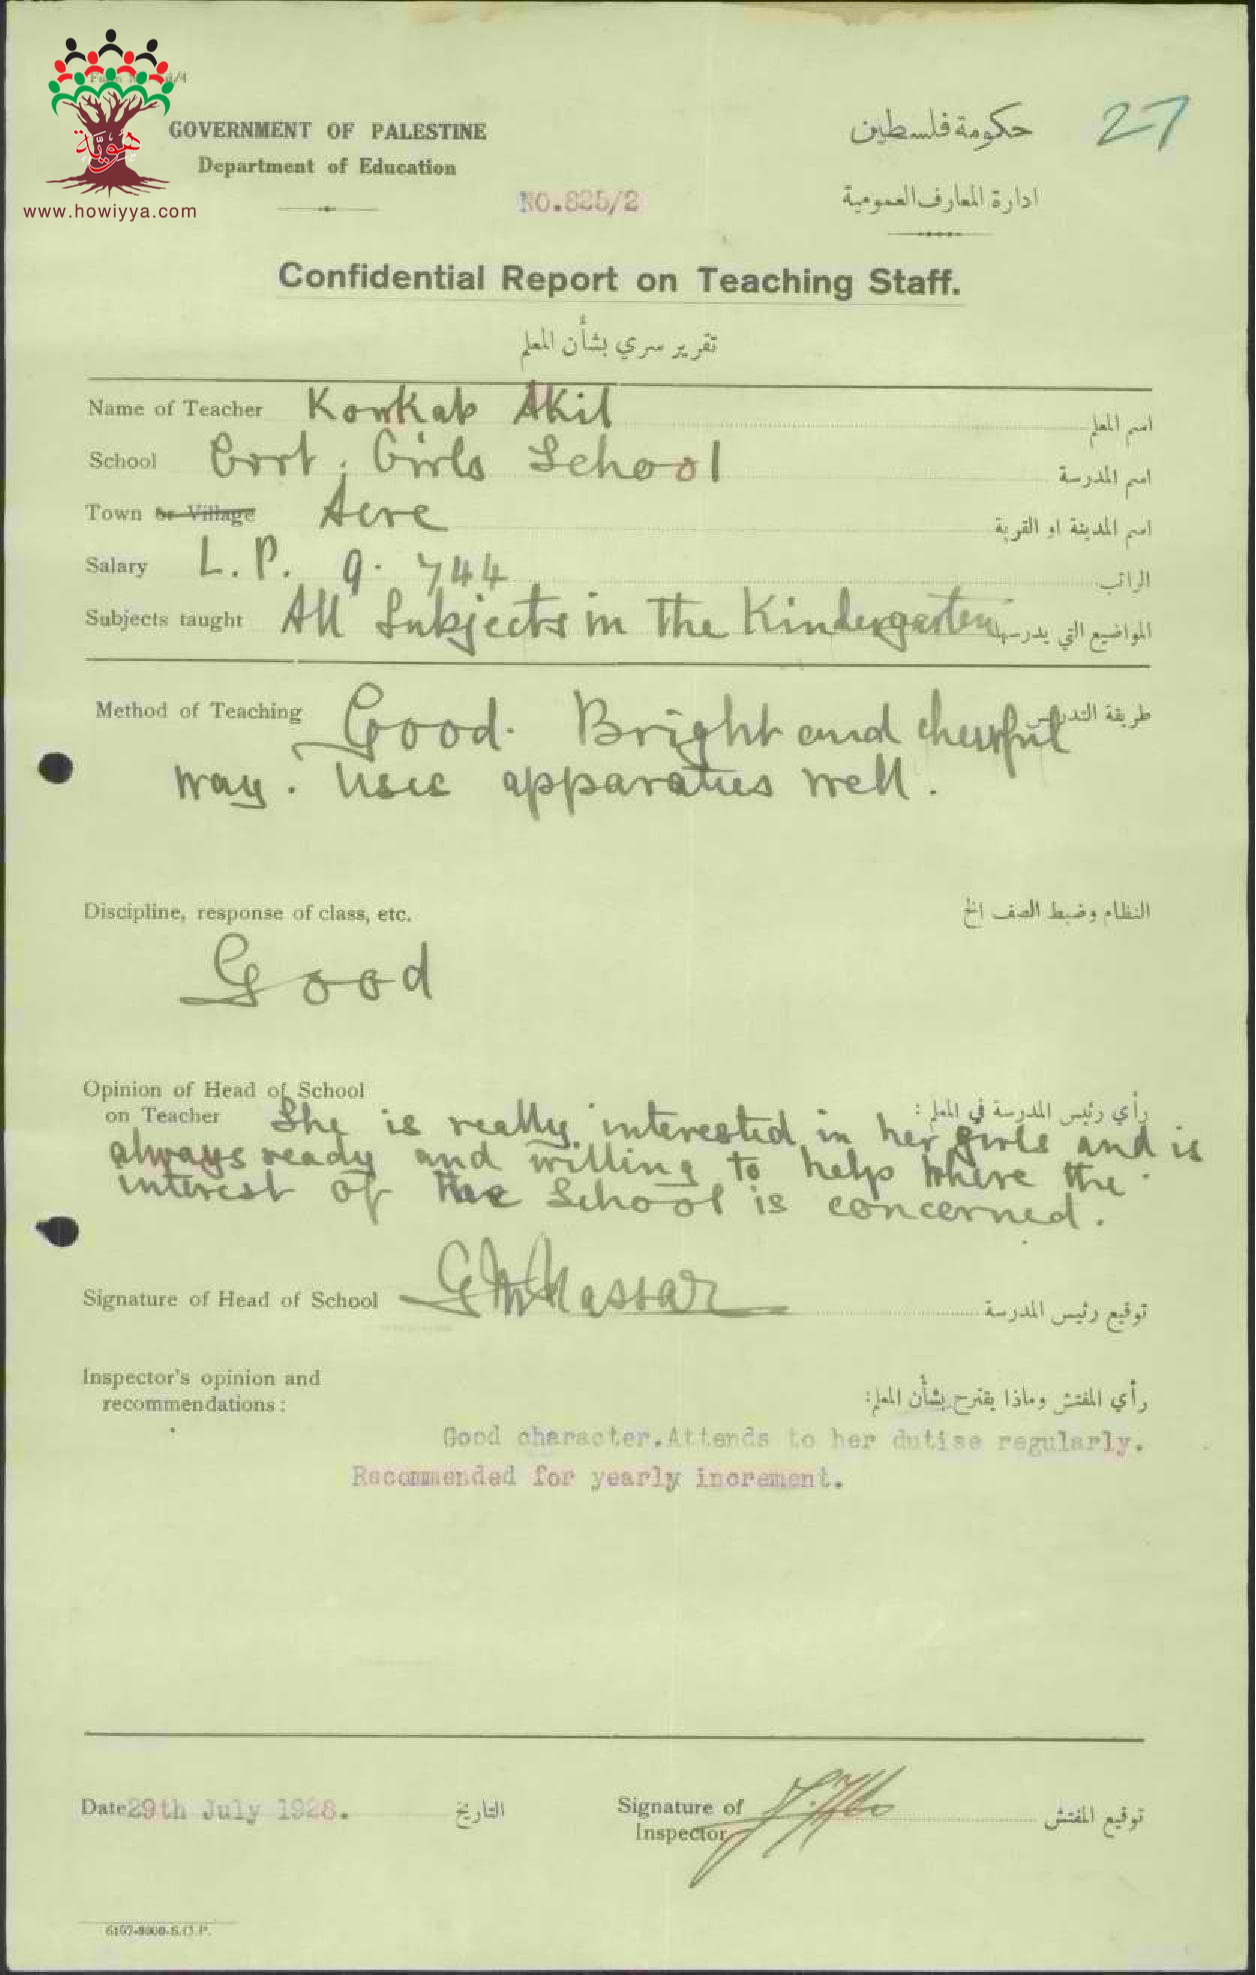 GOVERNMENT OF PALESTINE
Department of Education
هوية
www.howiyya.com
حكومة فلسطين
ادارة المعارف العمومية
27
NO.825/2
Confidential Report on Teaching Staff.
تقرير سري بشأن المعلم
Name of Teacher Kowkab Akil اسم المعلم
School Govt. Girls School اسم المدرسة
Town or Village Acre اسم المدينة او القرية
Salary L.P. 9.744 الراتب
Subjects taught All Subjects in the Kindergarten المواضيع التي يدرسها
Method of Teaching Good. Bright and cheerful طريقة التدريس
way. Uses apparatus well.
Discipline, response of class, etc. النظام وضبط الصف الخ
Good
Opinion of Head of School
on Teacher She is really interested in her girls and is رأي رئيس المدرسة في المعلم :
always ready and willing to help where the
interest of the School is concerned.
Signature of Head of School Nassar توقيع رئيس المدرسة
Inspector's opinion and
recommendations : رأي المفتش وماذا يقترح بشأن المعلم:
Good character.Attends to her dutise regularly.
Recommended for yearly increment.
Date 29th July 1928. التاريخ
Signature of
Inspector توقيع المفتش
6107-9000-S.O.P.